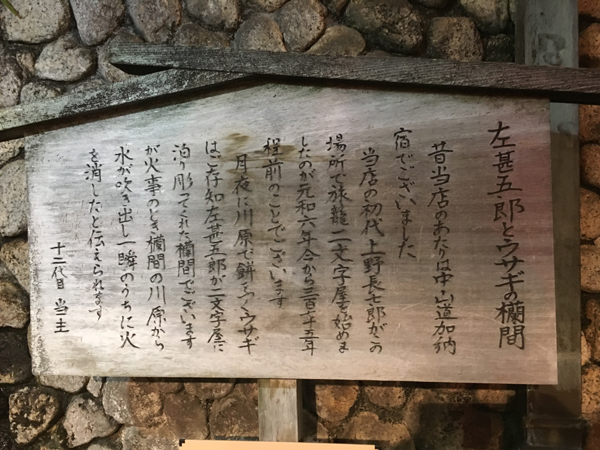 左甚五郎とウサギの欄間
昔当店のあたりは中山道加納
宿でございました
当店の初代上野長七郎がこの
場所で旅籠二文字屋を始めま
したのが元和六年今から三百七十五年
程前のことでございます
月夜に川原で餅をつくウサギ
はご存知左甚五郎が二文字屋に
泊り彫ってくれた欄間でございます
が火事のとき欄間の川原から
水が吹き出し一瞬のうちに火
を消したと伝えられます
十二代目 当主